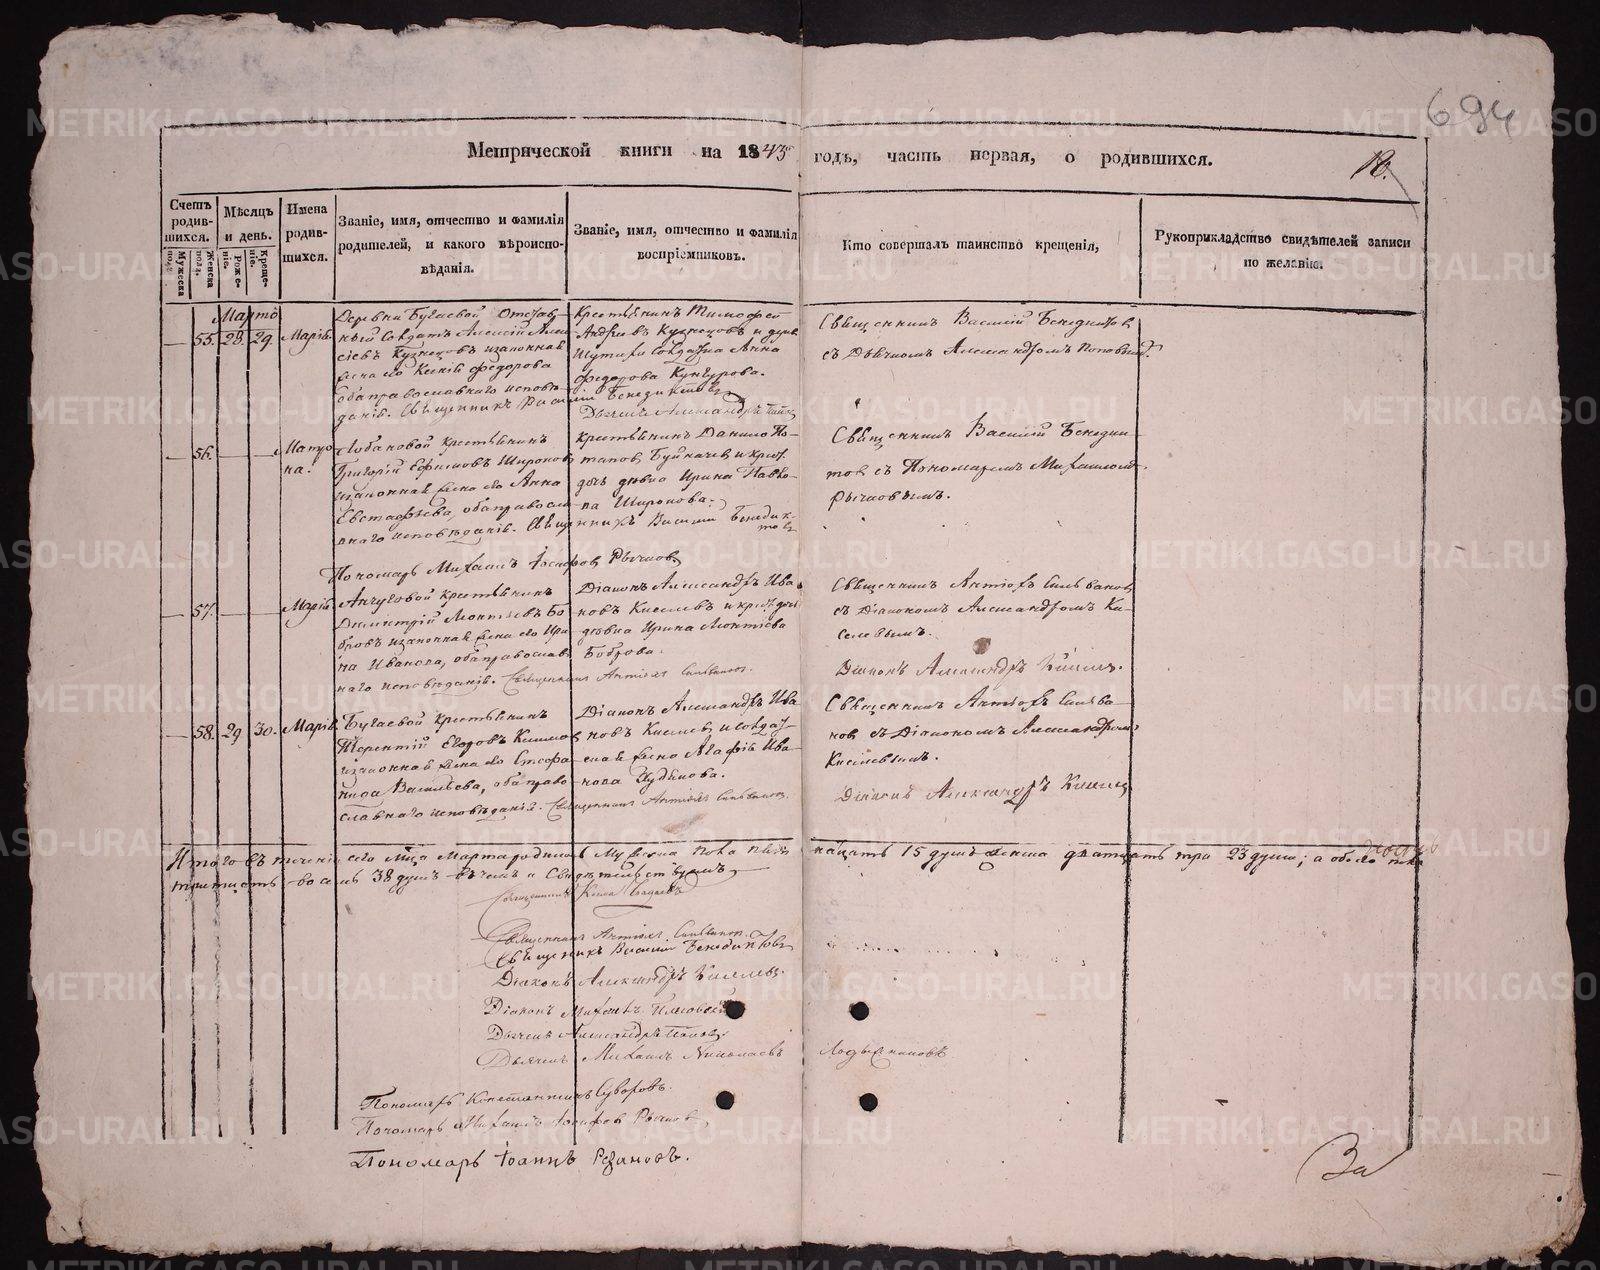 694
Метрической книги на 1843 годъ, часть первая, о родившихся.
18.
Счетъ родив-шихся.
Мужеска полу.
Женска полу.
Мѣсяцъ и день.
Рожде-ніе.
Креще-ніе.
Имена родив-шихся.
Званіе, имя, отчество и фамилія родителей, и какого вѣроиспо-вѣданія.
Званіе, имя, отчество и фамилія воспріемниковъ.
Кто совершалъ таинство крещенія,
Рукоприкладство свидѣтелей записи по желанію.
Марта
55. 28. 29. Марія.
Деревни Бугаевой Отстав-
ный Солдатъ Алексій Алек-
сіевъ Кузнецовъ изаконная
жена его Ксенія Федорова
оба православнаго исповѣ-
данія. Священникъ Василій Бенедиктовъ
Крестьянинъ Тимофей
Андреевъ Кузнецовъ и
Солдатка Анна
Федорова
Дьячекъ Александръ Поповъ
Священникъ Василій Бенедиктовъ
съ Дьячкомъ Александромъ Поповымъ.
56.
Матро-
на.
Лобановой крестьянинъ
Григорій Ефимовъ Широковъ
изаконная жена его Анна
Евстафьева, оба православ-
наго исповѣданія. Священникъ Василій Бенедик-
товъ
Крестьянинъ Данило По-
тапов и крест.
дочь дѣвка Ирина Павло-
ва Широкова.
Пономарь Михаилъ Іосифовъ Рычковъ
Священникъ Василій Бенедик-
товъ съ Пономаремъ Михаиломъ
Рычковымъ.
57.
Марія.
Анчуговой крестьянинъ
Димитрій Леонтьевъ Бо-
бровъ изаконная жена его Ири-
на Иванова, оба православ-
наго исповѣданія. Священникъ Антіохъ Сильвановъ.
Діаконъ Александръ Ива-
новъ Киселевъ и крест. дочь
дѣвка Ирина Леонтіева
Боброва.
Священникъ Антіохъ Сильвановъ
съ Діакономъ Александромъ Ки-
селевымъ.
Діаконъ Александръ Киселевъ.
58. 29 30. Марія
Бугаевой крестьянинъ
Терентій Егоровъ
изаконная жена его Стефа-
нида Васильева, оба право-
славнаго исповѣданія. Священникъ Антіохъ Сильвановъ.
Діаконъ Александръ Ива-
новъ Киселевъ и солдат-
ская жена Агафія Ива-
нова
Священникъ Антіохъ Сильва-
новъ съ Діакономъ Александромъ
Киселевымъ.
Діаконъ Александръ Киселевъ
Итого въ теченіи сего Мца Марта родилось Мужеска пола пят-надцать 15 душъ женска двадцать три 23 души; а обоего пола
тритцать восемь 38 душъ въ чемъ и Свидѣтельствуемъ
Священникъ
Священникъ Антіохъ Сильвановъ.
Священникъ Василій Бенедиктовъ
Діаконъ Александръ Киселевъ.
Діаконъ Михаилъ
Дьячекъ Александръ Поповъ.
Дьячекъ Михаилъ Николаевъ
Пономарь Константинъ Суворовъ.
Пономарь Михаилъ Іосифовъ Рычковъ
Пономарь Іоаннъ Резановъ.
За
METRIKI.GASO-URAL.RU